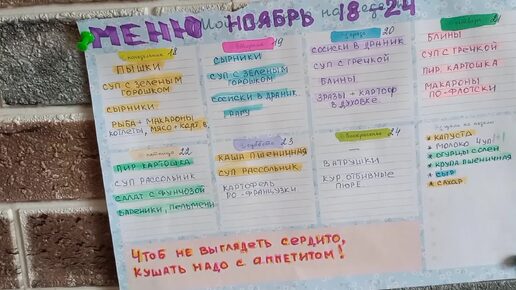 МЕНЮ НОЯБРЬ 18-24
понедельник 18
ПЫШКИ
СУП С ЗЕЛЕНЫМ
ГОРОШКОМ
СЫРНИКИ
РЫБА + МАКАРОНЫ
КОТЛЕТЫ, МЯСО + КАРТ В.
вторник 19
СЫРНИКИ
СУП С ЗЕЛЕНЫМ
ГОРОШКОМ
СОСИСКИ В ДРАНИК
среда 20
СОСИСКИ В ДРАНИК
СУП С ГРЕЧКОЙ
БЛИНЫ
ЗРАЗЫ + КАРТОФ
В ДУХОВКЕ
четверг
БЛИНЫ
СУП С ГРЕЧКОЙ
ПИР. КАРТОШКА
МАКАРОНЫ
ПО-ФЛОТСКИ
пятница 22
ПИР КАРТОШКА
СУП РАССОЛЬНИК
САЛАТ С ФУНЧОЗОЙ
ВАРЕНИКИ, ПЕЛЬМЕНИ
суббота 23
КАША ПШЕНИЧНАЯ
СУП РАССОЛЬНИК
КАРТОФЕЛЬ
ПО-ФРАНЦУЗКИ
воскресенье 24
ВАТРУШКИ
КУР. ОТБИВНЫЕ
ПЮРЕ
на неделю
* КАПУСТА
* МОЛОКО 4уп!
* ОГУРЦЫ СОЛЕН
* КРУПА ПШЕНИЧНАЯ
* СЫР
* САХАР
ЧТОБ НЕ ВЫГЛЯДЕТЬ СЕРДИТО,
КУШАТЬ НАДО С АППЕТИТОМ!